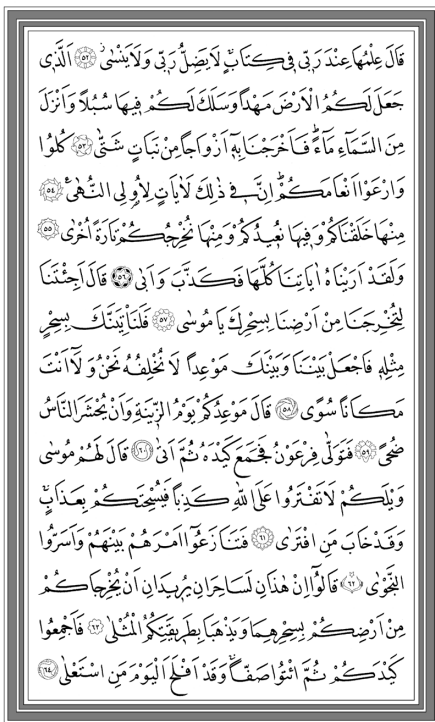 قَالَ عِلْمُهَا عِنْدَ رَبّ۪ي ف۪ي كِتَابٍۚ لَا يَضِلُّ رَبّ۪ي وَلَا يَنْسٰىۘ ﴿٥٢﴾ اَلَّذ۪ي
جَعَلَ لَكُمُ الْاَرْضَ مَهْداً وَسَلَكَ لَكُمْ ف۪يهَا سُبُلاً وَاَنْزَلَ
مِنَ السَّمَٓاءِ مَٓاءًۜ فَاَخْرَجْنَا بِه۪ٓ اَزْوَاجاً مِنْ نَبَاتٍ شَتّٰى ﴿٥٣﴾ كُلُوا
وَارْعَوْا اَنْعَامَكُمْۜ اِنَّ ف۪ي ذٰلِكَ لَاٰيَاتٍ لِاُو۬لِي النُّهٰى۟ ﴿٥٤﴾
مِنْهَا خَلَقْنَاكُمْ وَف۪يهَا نُع۪يدُكُمْ وَمِنْهَا نُخْرِجُكُمْ تَارَةً اُخْرٰى ﴿٥٥﴾
وَلَقَدْ اَرَيْنَاهُ اٰيَاتِنَا كُلَّهَا فَكَذَّبَ وَاَبٰى ﴿٥٦﴾ قَالَ اَجِئْتَنَا
لِتُخْرِجَنَا مِنْ اَرْضِنَا بِسِحْرِكَ يَا مُوسٰى ﴿٥٧﴾ فَلَنَأْتِيَنَّكَ بِسِحْرٍ
مِثْلِه۪ فَاجْعَلْ بَيْنَنَا وَبَيْنَكَ مَوْعِداً لَا نُخْلِفُهُ نَحْنُ وَلَٓا اَنْتَ
مَكَاناً سُوًى ﴿٥٨﴾ قَالَ مَوْعِدُكُمْ يَوْمُ الزّ۪ينَةِ وَاَنْ يُحْشَرَ النَّاسُ
ضُحًى ﴿٥٩﴾ فَتَوَلّٰى فِرْعَوْنُ فَجَمَعَ كَيْدَهُ ثُمَّ اَتٰى ﴿٦٠﴾ قَالَ لَهُمْ مُوسٰى
وَيْلَكُمْ لَا تَفْتَرُوا عَلَى اللّٰهِ كَذِباً فَيُسْحِتَكُمْ بِعَذَابٍۚ
وَقَدْ خَابَ مَنِ افْتَرٰى ﴿٦١﴾ فَتَنَازَعُٓوا اَمْرَهُمْ بَيْنَهُمْ وَاَسَرُّوا
النَّجْوٰى ﴿٦٢﴾ قَالُٓوا اِنْ هٰذَانِ لَسَاحِرَانِ يُر۪يدَانِ اَنْ يُخْرِجَاكُمْ
مِنْ اَرْضِكُمْ بِسِحْرِهِمَا وَيَذْهَبَا بِطَر۪يقَتِكُمُ الْمُثْلٰى ﴿٦٣﴾ فَاَجْمِعُوا
كَيْدَكُمْ ثُمَّ ائْتُوا صَفًّاۚ وَقَدْ اَفْلَحَ الْيَوْمَ مَنِ اسْتَعْلٰى ﴿٦٤﴾